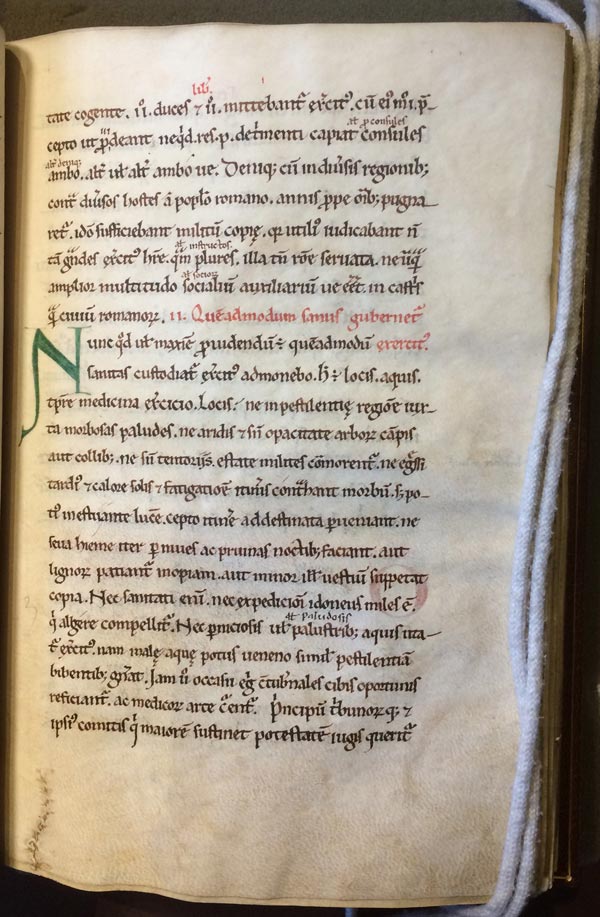 lib.
tate cogente .ii. duces & .ii. mittebant̄ exc̄itꝰ. cū eiꝰmōi. p̄-
cepto ut p̄uideant neqͥd. res. p. detm̄enti capiat consules
al̄ p̄consules
ambo. alt̄ ul̄ alt̄ ambo ue. Deniqꝫ cū in diuſis regionibꝫ
al̄ deniqꝫ
cont̄ diuſos hostes a poplō romano. annis ꝓpe ōibꝫ pugna-
ret̄. idō sufficiebant militū copię. qꝛ utiliꝰ iudicabant n̄
tā gͣndes exc̄itꝰ hr̄e. qͣm plures. illa tn̄ rōe seruata. ne ūqͣ
al̄ instructos.
amplior multitudo socialiū auxiliariū ue eēt in castͥs
al̄ socioꝝ
qͣ ciuiū romanoꝝ. II. Quēadmodum sanus gubernet̄
exercitꝰ.
Nunc qͦd ul̄ maxīe ꝓuidendū ē quēadmodū
sanitas custodiat̄ exc̄itꝰ admonebo. h̄ ē locis. aquis.
tp̄re medicina exc̄icio. Locis. ne in pestilentię regiōe iux-
ta morbosas paludes. ne aridis & sn̄ opacitate arboꝝ cāpis
aut collibꝫ. ne sn̄ tentorijs. estate milites cōmorent̄. ne eḡssi
tardiꝰ & calore solis & fatigatiōe itin̄is contͣhant morbū. sꝫ po-
tiꝰ in estiuante lucē. cepto itin̄e ad destinata ꝑueniant. ne
seua hieme iter ꝑ niues ac pruinas noctibꝫ faciant. aut
lignoꝝ patiant̄ inopiam. aut minor ill̄ uestiū suppetat
copia. Nec sanitati eni̅. nec expedicioī idoneus miles ē.
qͥ algere compellit̄. Nec ꝑniciosis ul̄ palustribꝫ aquis uta-
al̄ paludosis
t̄ exc̄itꝰ. nam malę aquę potus ueneno simil̄ pestilentiā
bibentibꝫ gn̄at. Iam u̅o occasu eg̅ ctūbn̄ales cibis oportunis
reficiant̄. ac medicoꝝ arte cͥent̄. Pͥncipū tͥbunorqꝫ &
ipsiꝰ comitis qͥ maiorē sustinet potestatē iugis querit̄